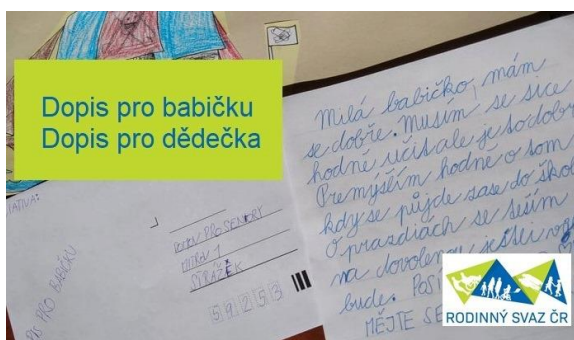 Dopis pro babičku
Dopis pro dědečka
Milá babičko, mám
se dobře. Musím se sice
hodně učit ale je to dobr
Přemýšlím hodně o tom
kdy se půjde zase do škol
O prazdiach se těším
na dovolenou jestli
bude.
MĚJTE SE
PRO SENIORY
MÍROV 1
STRÁŽEK
59253
PRO BABIČKU
RODINNÝ SVAZ ČR